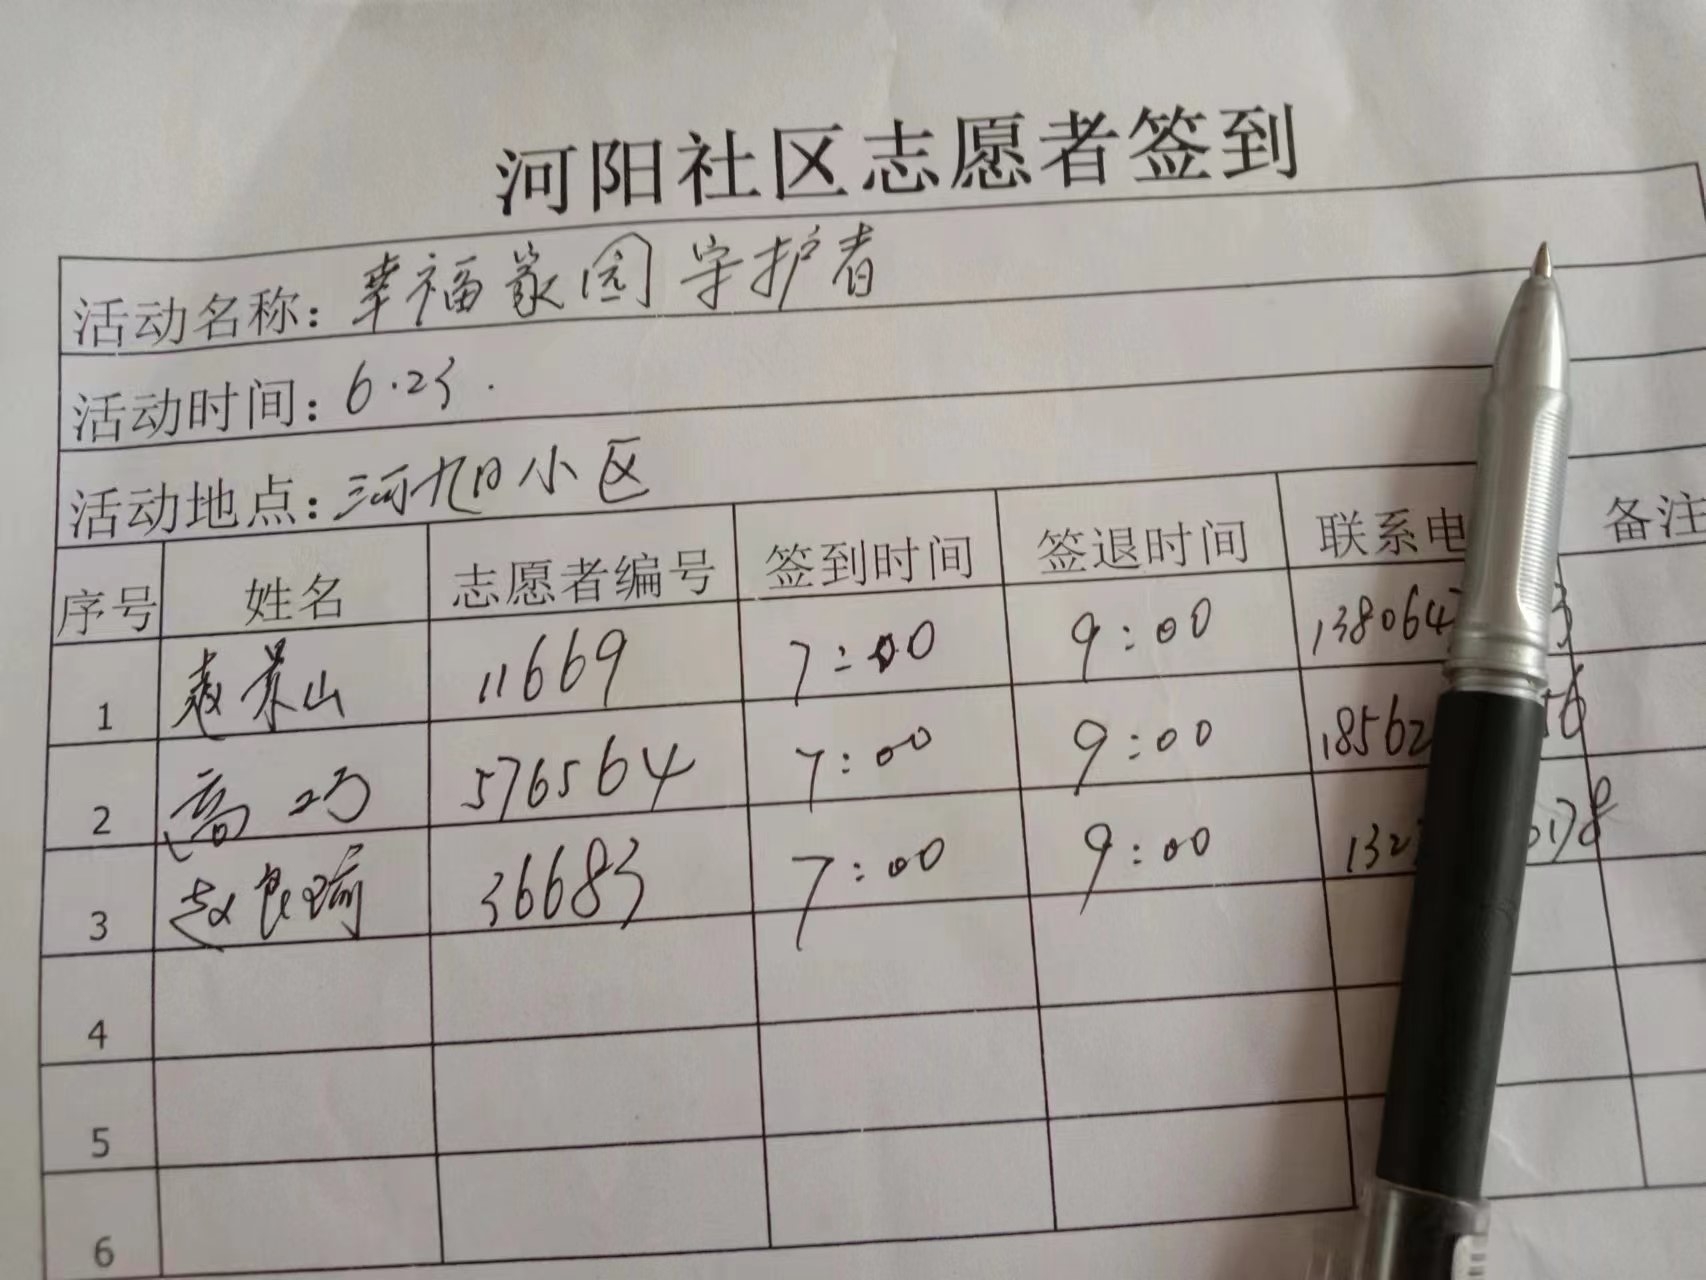 河阳社区志愿者签到
活动名称：幸福家园守护者
活动时间：6.23.
活动地点：河阳小区
序号 姓名 志愿者编号 签到时间 签退时间 联系电 备注
1 景山 11669 7:00 9:00 138064 3
2 高巧 576564 7:00 9:00 18562 56
3 赵良瑜 36683 7:00 9:00 132 0178
4
5
6